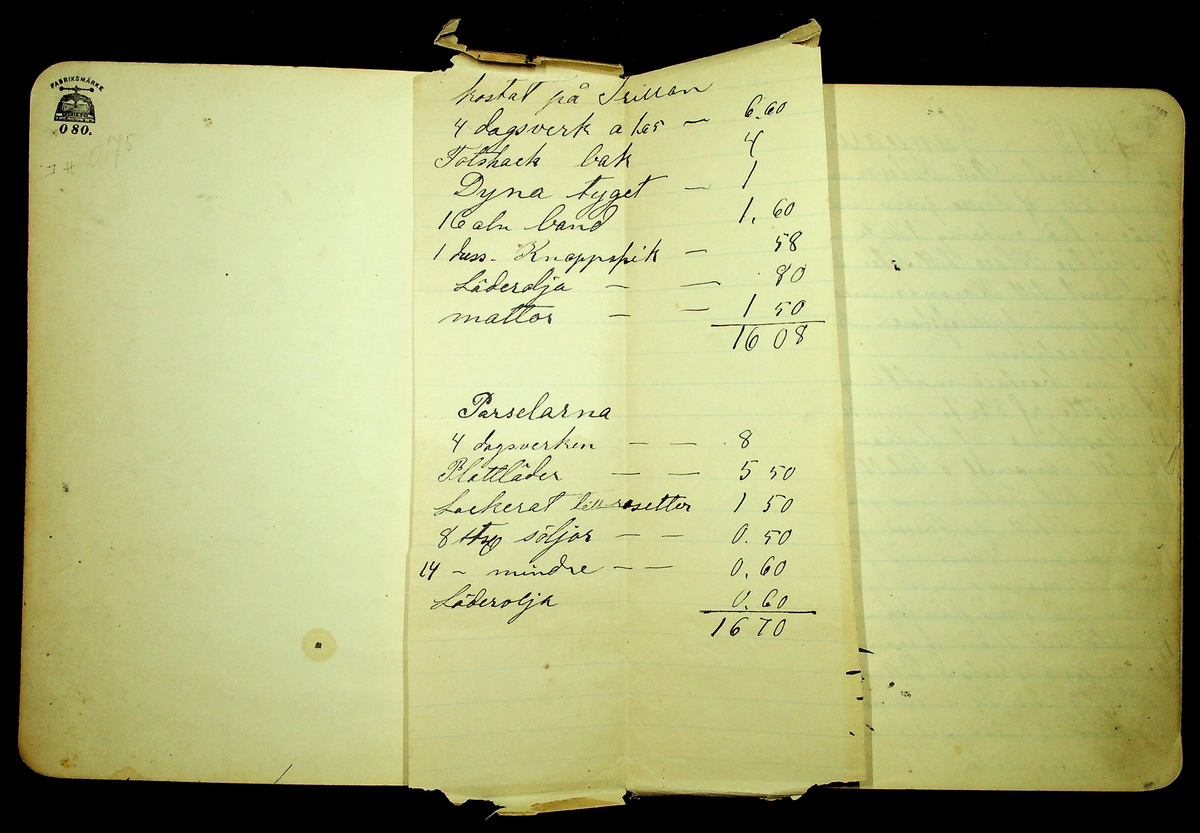 FABRIKSMÄRKE
080.
0.75
kostat på Trillan
4 dagsverk a 1.65 — 6.60
Fotshack bak 4
Dyna tyget — 1
16 aln band 1.60
1 duss. Knappspik — 58
Läderolja — — 80
mattor — — 1 50
16 08
Parselarna
4 dagsverken — — 8
Plattläder — — 5 50
Lackerat till rosetter 1 50
8 söljor — — 0.50
14 - mindre — — 0.60
Läderolja 0.60
16 70